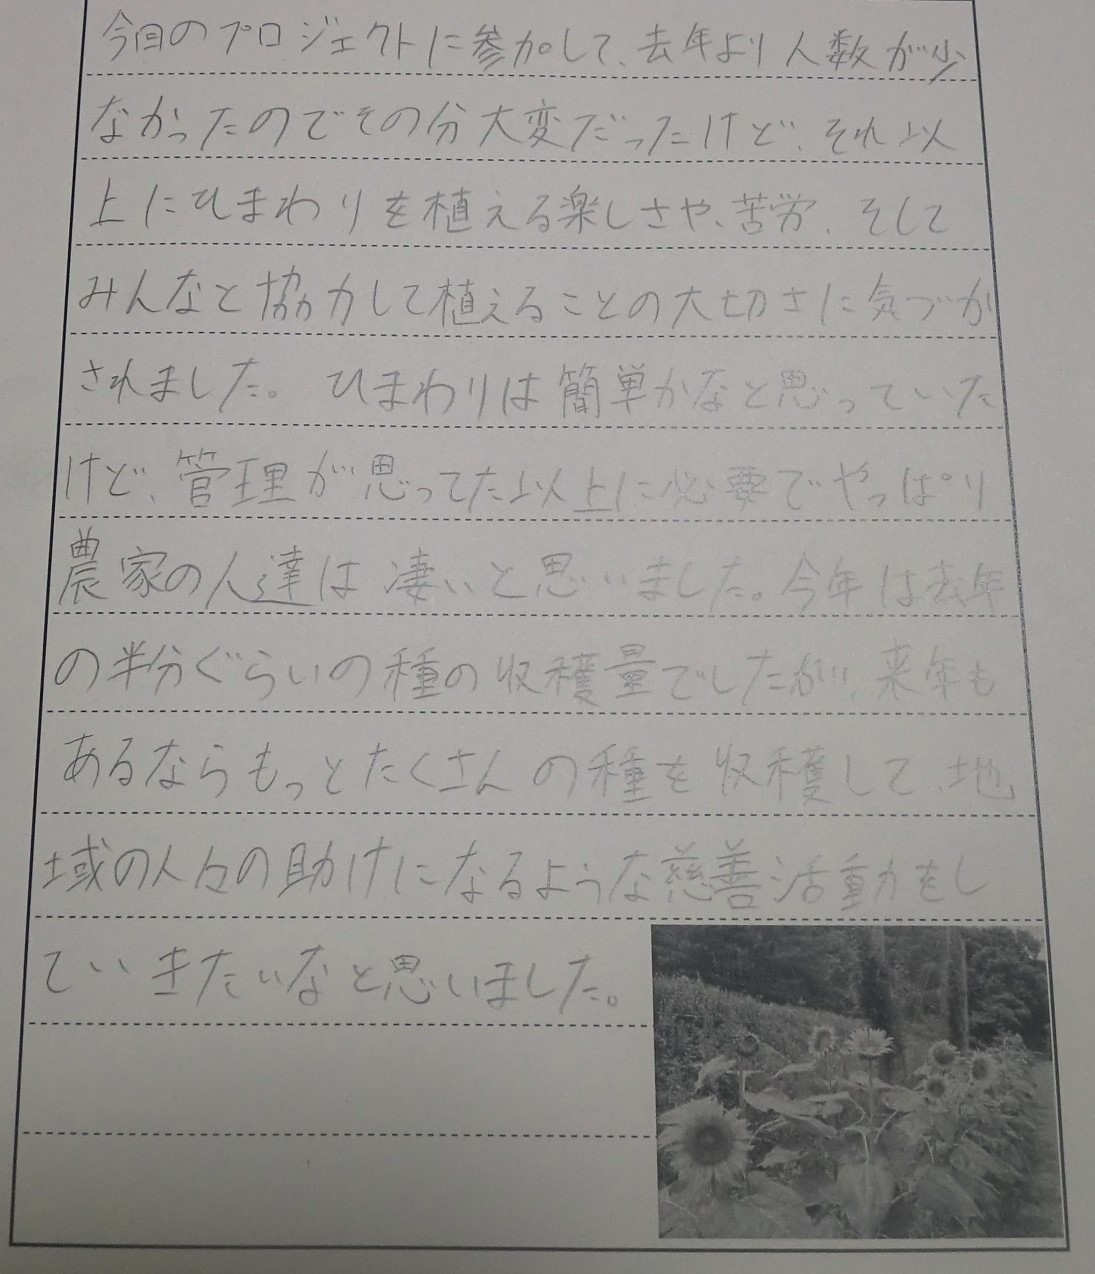 今回のプロジェクトに参加して、去年より人数が少
なかったのでその分大変だったけど、それ以
上にひまわりを植える楽しさや、苦労、そして
みんなと協力して植えることの大切さに気づか
されました。ひまわりは簡単かなと思っていた
けど、管理が思ってた以上に必要でやっぱり
農家の人達は凄いと思いました。今年は去年
の半分ぐらいの種の収穫量でしたが、来年も
あるならもっとたくさんの種を収穫して、地
域の人々の助けになるような慈善活動をし
ていきたいなと思いました。